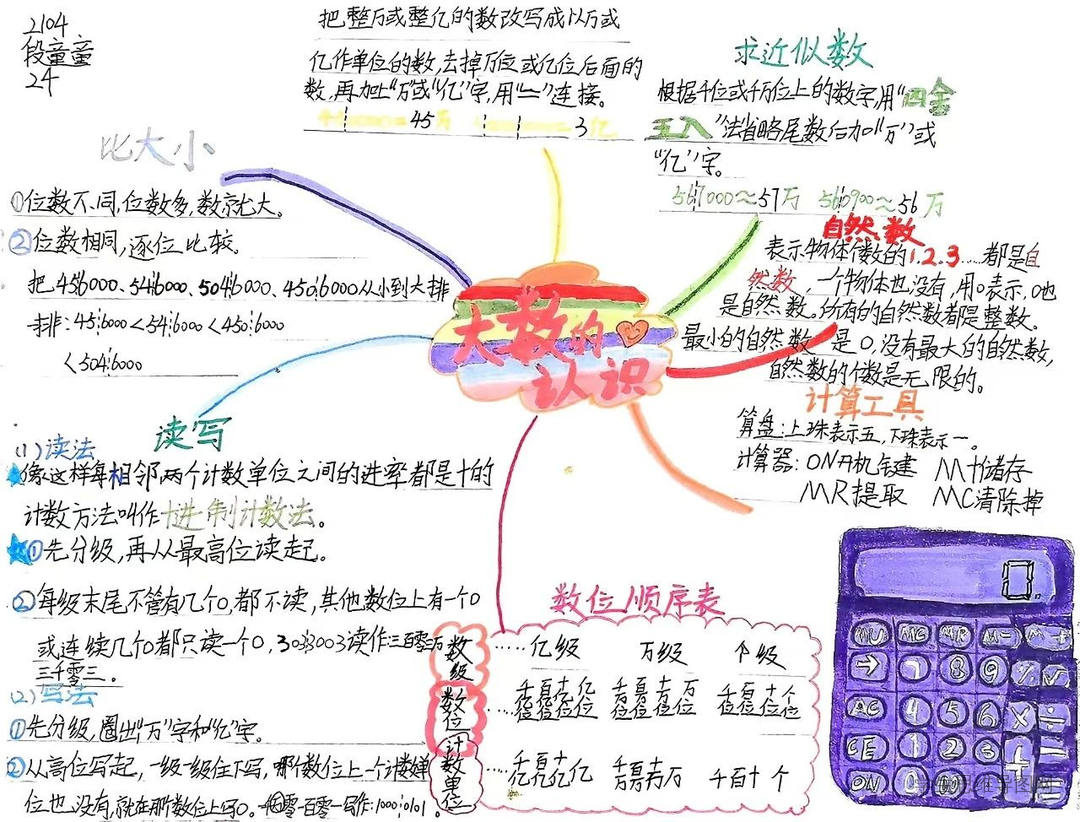 2104
段童童
24
把整万或整亿的数改写成以万或
亿作单位的数,去掉万位或亿位后面的
数,再加上"万"或"亿"字,用"="连接。
=45万
=3亿
求近似数
根据千位或千万位上的数字,用"四舍
五入"法省略尾数后加"万"或
"亿"字。
567000≈57万 560900≈56万
比大小
①位数不同,位数多,数就大。
②位数相同,逐位比较。
把456000、546000、5046000、4506000从小到大排
排:456000<546000<4506000
<5046000
自然数
表示物体个数的1.2.3……都是自
然数,一个物体也没有,用0表示,0也
是自然数。所有的自然数都是整数。
最小的自然数是0,没有最大的自然数,
自然数的个数是无限的。
大数的
认识
计算工具
算盘:上珠表示五,下珠表示一。
计算器:ON开机键 M+储存
MR提取 MC清除掉
读写
(1)读法
像这样每相邻两个计数单位之间的进率都是十的
计数方法叫作十进制计数法。
①先分级,再从最高位读起。
②每级末尾不管有几个0,都不读,其他数位上有一个0
或连续几个0都只读一个0,3033003读作三百零三万
三千零三。
(2)写法
①先分级,圈出"万"字和"亿"字。
②从高位写起,一级一级往下写,哪个数位上一个计数单
位也没有,就在那数位上写0。
写作:10000101。
数位顺序表
数级 ……亿级 万级 个级
数位 ……千亿位 百亿位 十亿位 亿位 千万位 百万位 十万位 万位 千位 百位 十位 个位
计数单位 ……千亿 百亿 十亿 亿 千万 百万 十万 万 千 百 十 个
0.
MU MC MR M- M+
→ 7 8 9 % √
AC 4 5 6 × ÷
CE 1 2 3 + -
ON 0 00 . =